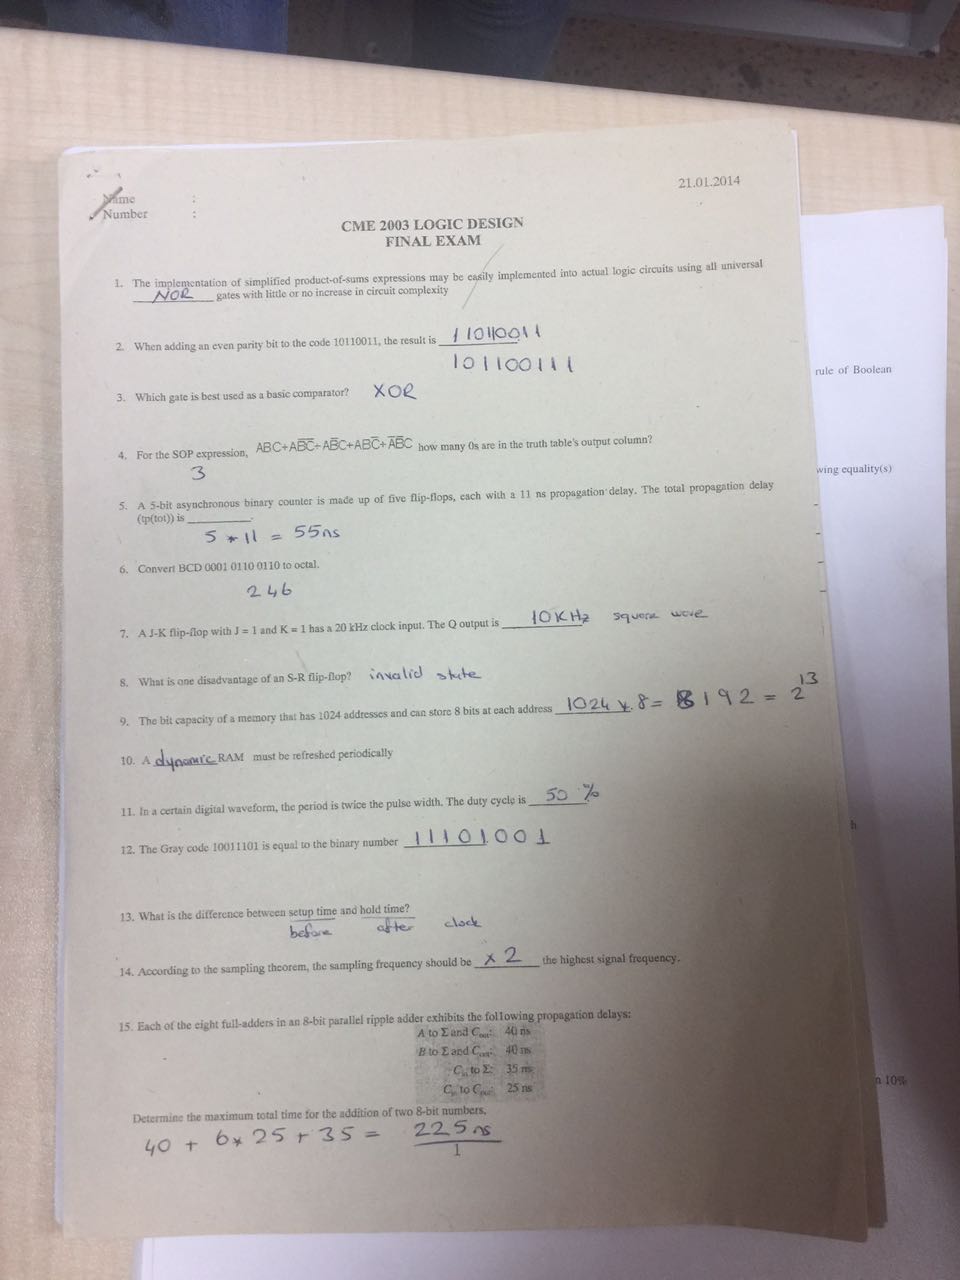 21.01.2014
Name :
Number :
CME 2003 LOGIC DESIGN
FINAL EXAM
1. The implementation of simplified product-of-sums expressions may be easily implemented into actual logic circuits using all universal
NOR gates with little or no increase in circuit complexity
2. When adding an even parity bit to the code 10110011, the result is 110110011
101100111
3. Which gate is best used as a basic comparator? XOR
4. For the SOP expression, ABC+AB̅C̅+AB̅C+ABC̅+A̅B̅C how many 0s are in the truth table's output column?
3
5. A 5-bit asynchronous binary counter is made up of five flip-flops, each with a 11 ns propagation delay. The total propagation delay
(tp(tot)) is ________.
5 * 11 = 55ns
6. Convert BCD 0001 0110 0110 to octal.
246
7. A J-K flip-flop with J = 1 and K = 1 has a 20 kHz clock input. The Q output is 10KHz square wave
8. What is one disadvantage of an S-R flip-flop? invalid state
9. The bit capacity of a memory that has 1024 addresses and can store 8 bits at each address 1024 * 8 = 8192 = 2¹³
10. A dynamic RAM must be refreshed periodically
11. In a certain digital waveform, the period is twice the pulse width. The duty cycle is 50 %
12. The Gray code 10011101 is equal to the binary number 11101001
13. What is the difference between setup time and hold time?
before after clock
14. According to the sampling theorem, the sampling frequency should be x 2 the highest signal frequency.
15. Each of the eight full-adders in an 8-bit parallel ripple adder exhibits the following propagation delays:
A to Σ and Cout: 40 ns
B to Σ and Cout: 40 ns
Cin to Σ: 35 ns
Cin to Cout: 25 ns
Determine the maximum total time for the addition of two 8-bit numbers.
40 + 6 * 25 + 35 = 225 ns
rule of Boolean
wing equality(s)
h
n 10%